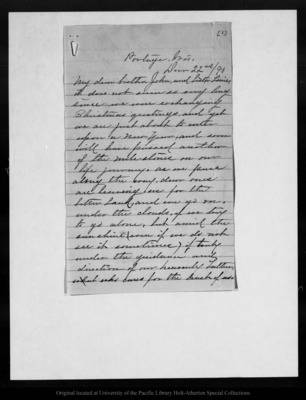 Portage, Wis.
Dec 22nd/90
My dear brother John, and Sister Louie,
it does not seem so very long
since we were exchanging
Christmas greetings, and yet
we are just about to enter
upon a New Year, and soon
will have passed another
of the mile stones on our
life journey, as we pass
along the way, dear ones
are leaving us for the
better land, and we go on
under the clouds, if we try
to go alone, but amid the
sunshine (even if we do not
see it sometimes) if
under the guidance and
direction of our heavenly Father,
who cares for the least of us
Original located at University of the Pacific Library Holt-Atherton Special Collections.